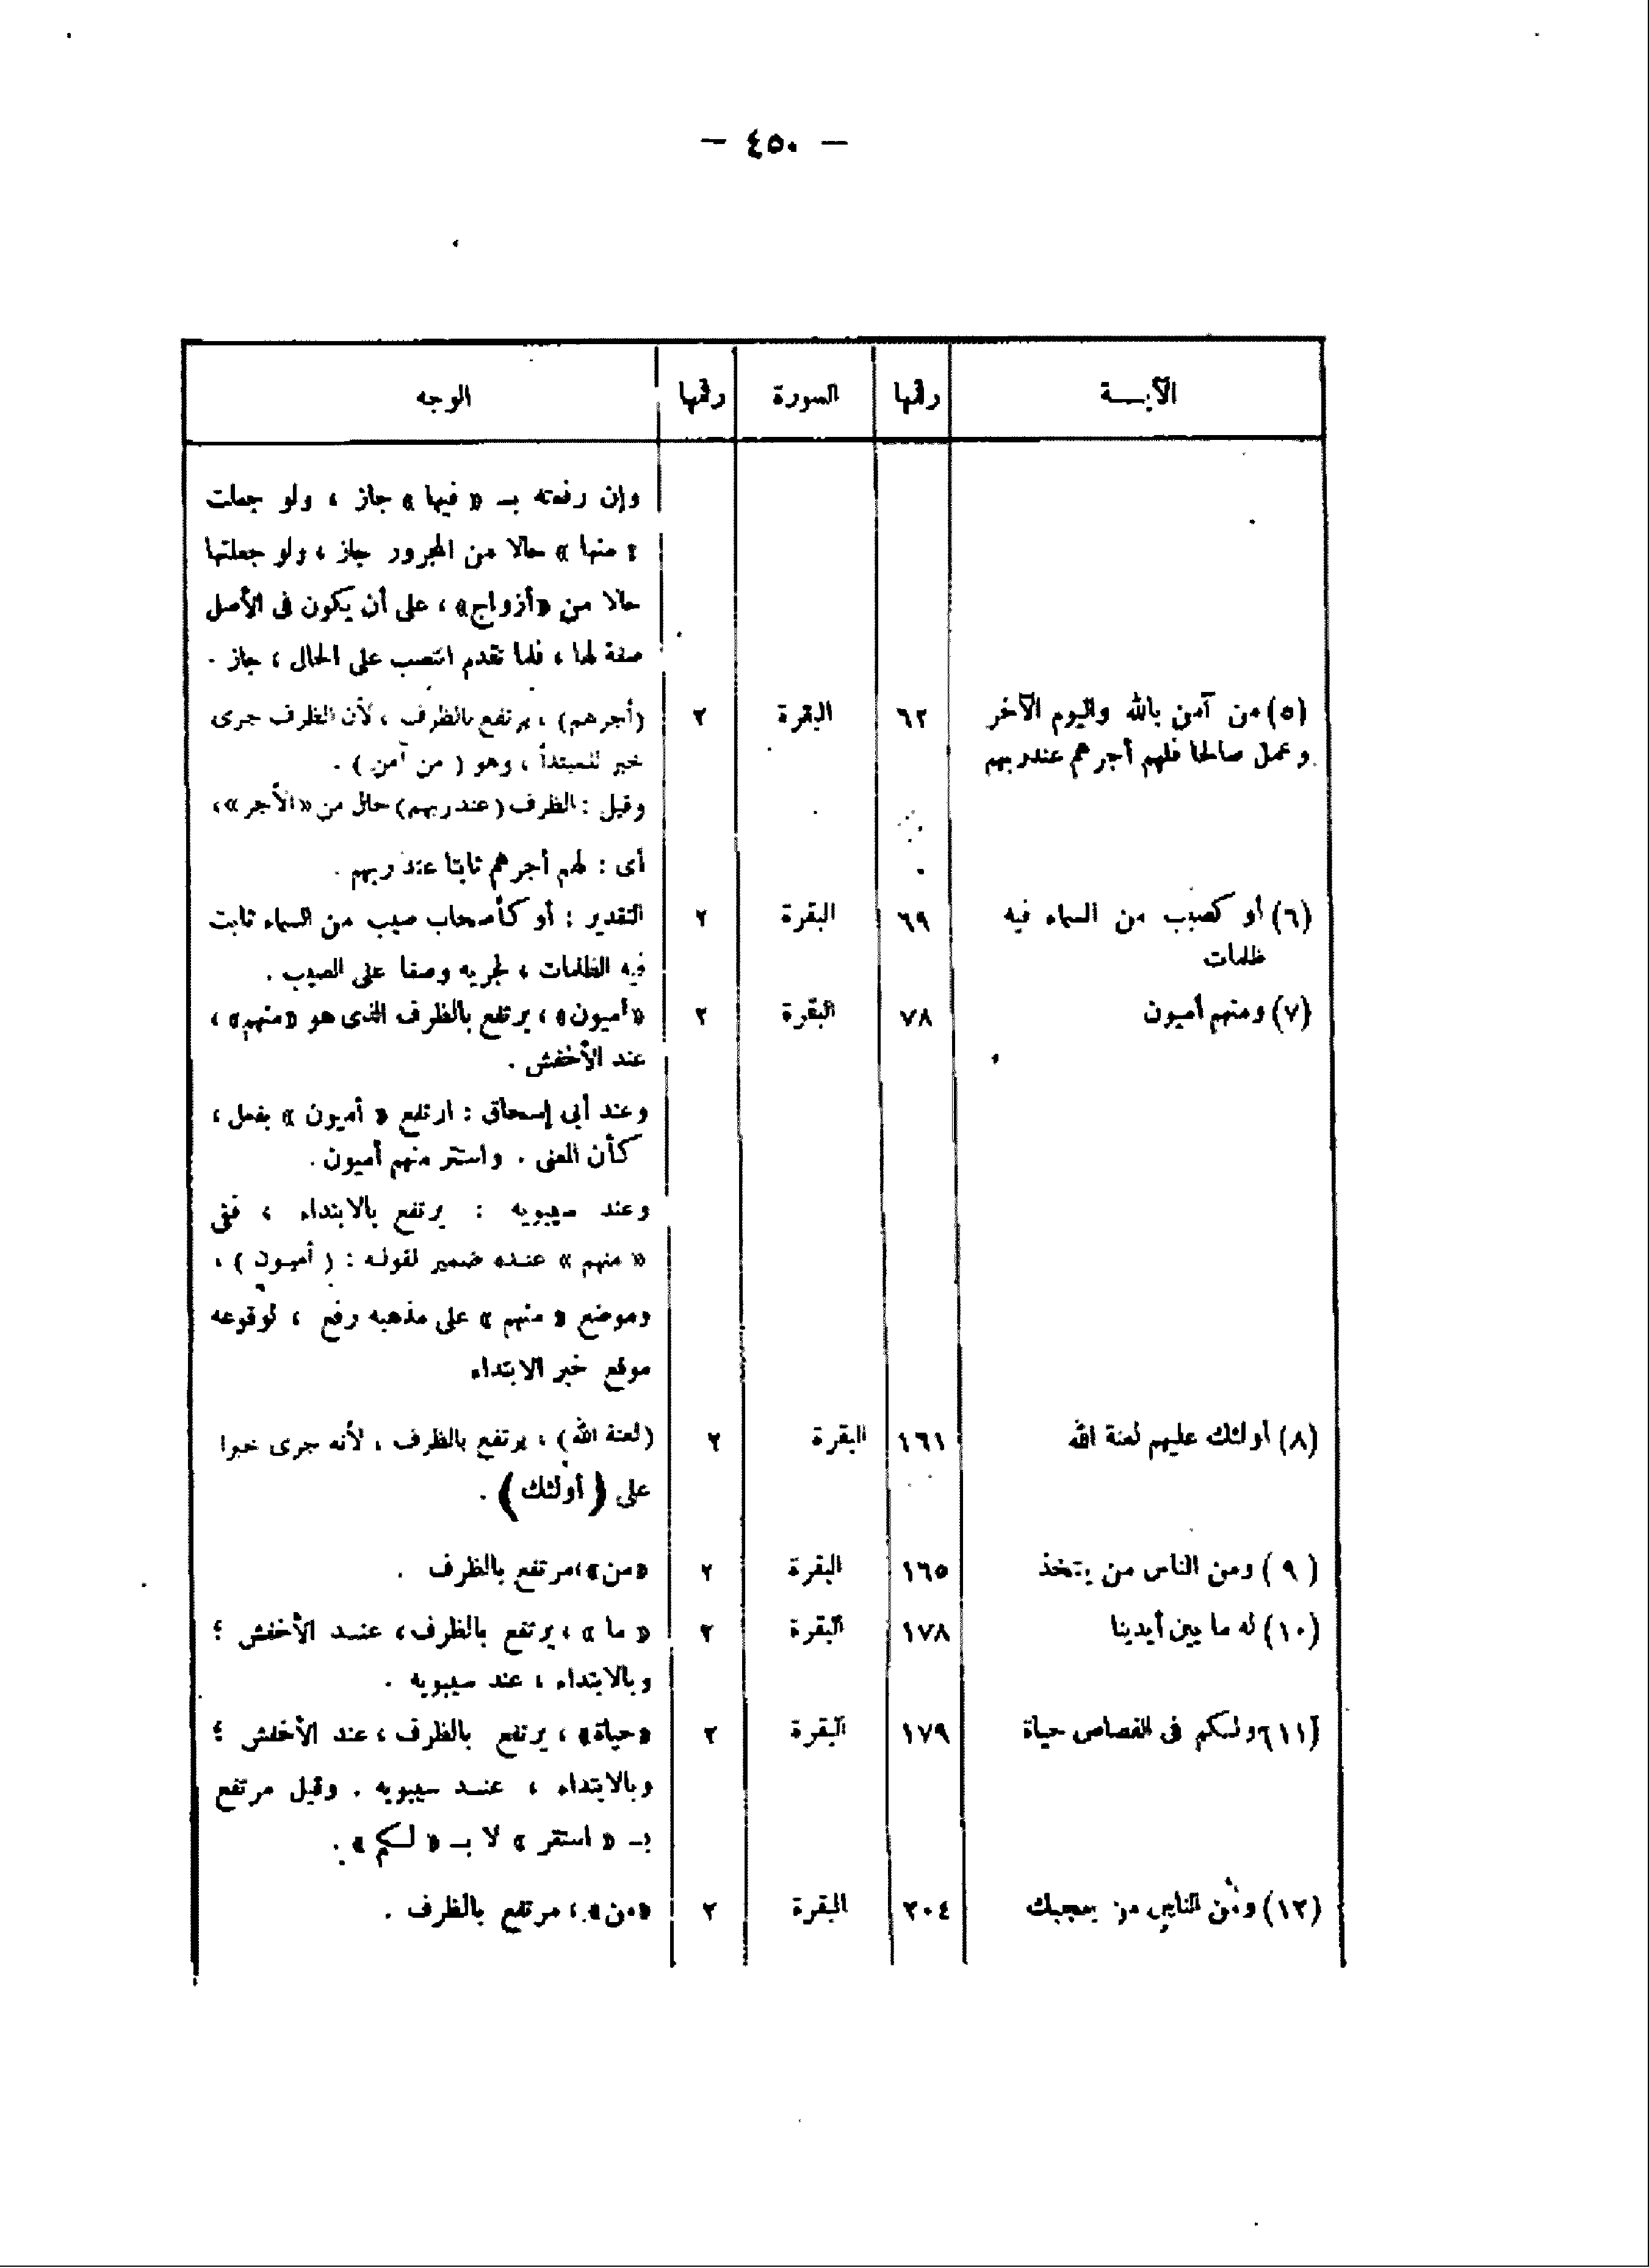 — ٤٥٠ —
الآيــة رقمها السورة رقمها الوجه
وإن رفعته بـ « فيها » جاز ، ولو جعلت
« منها » حالا من المجرور جاز ، ولو جعلتها
حالا من «أزواج» ، على أن يكون فى الأصل
صفة لها ، فلما تقدم انتصب على الحال ، جاز .
(٥) من آمن بالله واليوم الآخر ٦٢ البقرة ٢ (أجرهم) ، يرتفع بالظرف ، لأن الظرف جرى
وعمل صالحا فلهم أجرهم عند ربهم خبر للمبتدأ ، وهو ( من آمن ) .
وقيل : الظرف (عند ربهم) حال من «الأجر» ،
أى : لهم أجرهم ثابتا عند ربهم .
(٦) أو كصيب من السماء فيه ٦٩ البقرة ٢ التقدير : أو كأصحاب صيب من السماء ثابت
ظلمات فيه الظلمات ، لجريه وصفا على الصيب .
(٧) ومنهم أميون ٧٨ البقرة ٢ «أميون» ، يرتفع بالظرف الذى هو «منهم» ،
عند الأخفش .
وعند أبى إسحاق : ارتفع « أميون » بفعل ،
كأن المعنى . واستقر منهم أميون .
وعند سيبويه : يرتفع بالابتداء ، ففى
« منهم » عنده ضمير لقوله : ( أميون ) ،
وموضع « منهم » على مذهبه رفع ، لوقوعه
موقع خبر الابتداء
(٨) أولئك عليهم لعنة الله ١٦١ البقرة ٢ (لعنة الله) ، يرتفع بالظرف ، لأنه جرى خبرا
على (أولئك) .
(٩) ومن الناس من يتخذ ١٦٥ البقرة ٢ «من» ، مرتفع بالظرف .
(١٠) له ما بين أيدينا ١٧٨ البقرة ٢ « ما » ، يرتفع بالظرف ، عنـد الأخفش ؛
وبالابتداء ، عند سيبويه .
(١١) ولـكم فى القصاص حياة ١٧٩ البقرة ٢ «حياة» ، يرتفع بالظرف ، عند الأخفش ؛
وبالابتداء ، عنـد سيبويه . وقيل مرتفع
بـ « استقر » لا بـ « لـكم » .
(١٢) ومن الناس من يعجبك ٢٠٤ البقرة ٢ «من» ، مرتفع بالظرف .